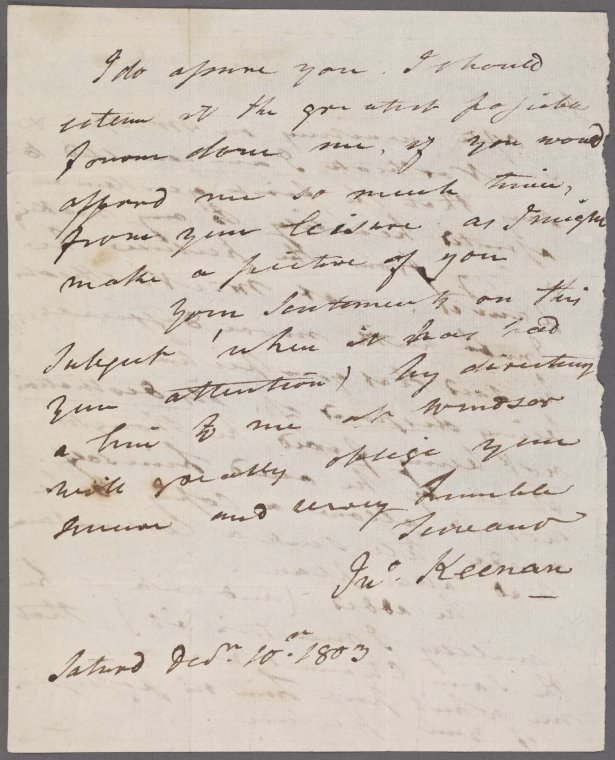 I do assure you. I should
esteem it the greatest possible
favour done me, if you would
afford me so much time,
from your leisure as I might
make a picture of you
Your Sentements on this
Subject (when it has had
your attention) by directing
a line to me at Windsor
will greatly oblige your
Sincere and very humble
Servant
Jno. Keenan
Saturd Decr. 10th. 1803